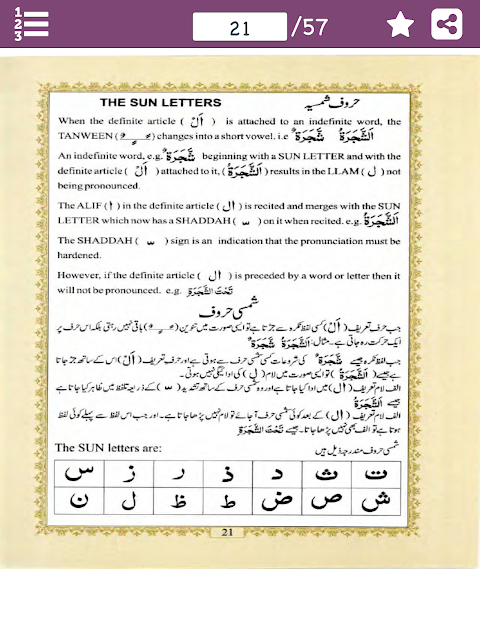 1
2
3
21 /57
THE SUN LETTERS حروف شمسیہ
When the definite article ( اَلْ ) is attached to an indefinite word, the
TANWEEN ( ) changes into a short vowel. i.e اَلشَّجَرَةُ شَجَرَةٌ
An indefinite word, e.g. شَجَرَةٌ beginning with a SUN LETTER and with the
definite article ( اَلْ ) attached to it, ( اَلشَّجَرَةُ ) results in the LLAM ( ل ) not
being pronounced.
The ALIF ( ا ) in the definite article ( ال ) is recited and merges with the SUN
LETTER which now has a SHADDAH ( ّ ) on it when recited. e.g. اَلشَّجَرَةُ
The SHADDAH ( ّ ) sign is an indication that the pronunciation must be
hardened.
However, if the definite article ( ال ) is preceded by a word or letter then it
will not be pronounced. e.g. تَحْتَ الشَّجَرَةِ
شمسی حروف
جب حرف تعریف ( اَلْ ) کسی لفظ نکرہ سے جڑتا ہے تو ایسی صورت میں تنوین ( ) باقی نہیں رہتی بلکہ اس حرف پر
ایک حرکت رہ جاتی ہے۔ مثال: اَلشَّجَرَةُ شَجَرَةٌ
جب لفظ نکرہ جیسے شَجَرَةٌ کی شروعات کسی شمسی حرف سے ہوتی ہے اور حرف تعریف ( اَلْ ) اس کے ساتھ جڑ جاتا
ہے جیسے ( اَلشَّجَرَةُ ) تو ایسی صورت میں لام ( ل ) کی ادائیگی نہیں ہوتی۔
الف لام تعریف ( ال ) میں ادا کیا جاتا ہے اور وہ شمسی حرف کے ساتھ تشدید ( ّ ) کے ذریعہ تلفظ میں ظاہر کیا جاتا ہے
جیسے اَلشَّجَرَةُ
الف لام تعریف ( ال ) کے بعد کوئی شمسی حرف آ جائے تو لام نہیں پڑھا جاتا ہے۔ اور جب اس لفظ سے پہلے کوئی لفظ
ہوتا ہے تو الف بھی نہیں پڑھا جاتا۔ جیسے تَحْتَ الشَّجَرَةِ
The SUN letters are: شمسی حروف مندرجہ ذیل ہیں
ت ث د ذ ر ز س
ش ص ض ط ظ ل ن
21